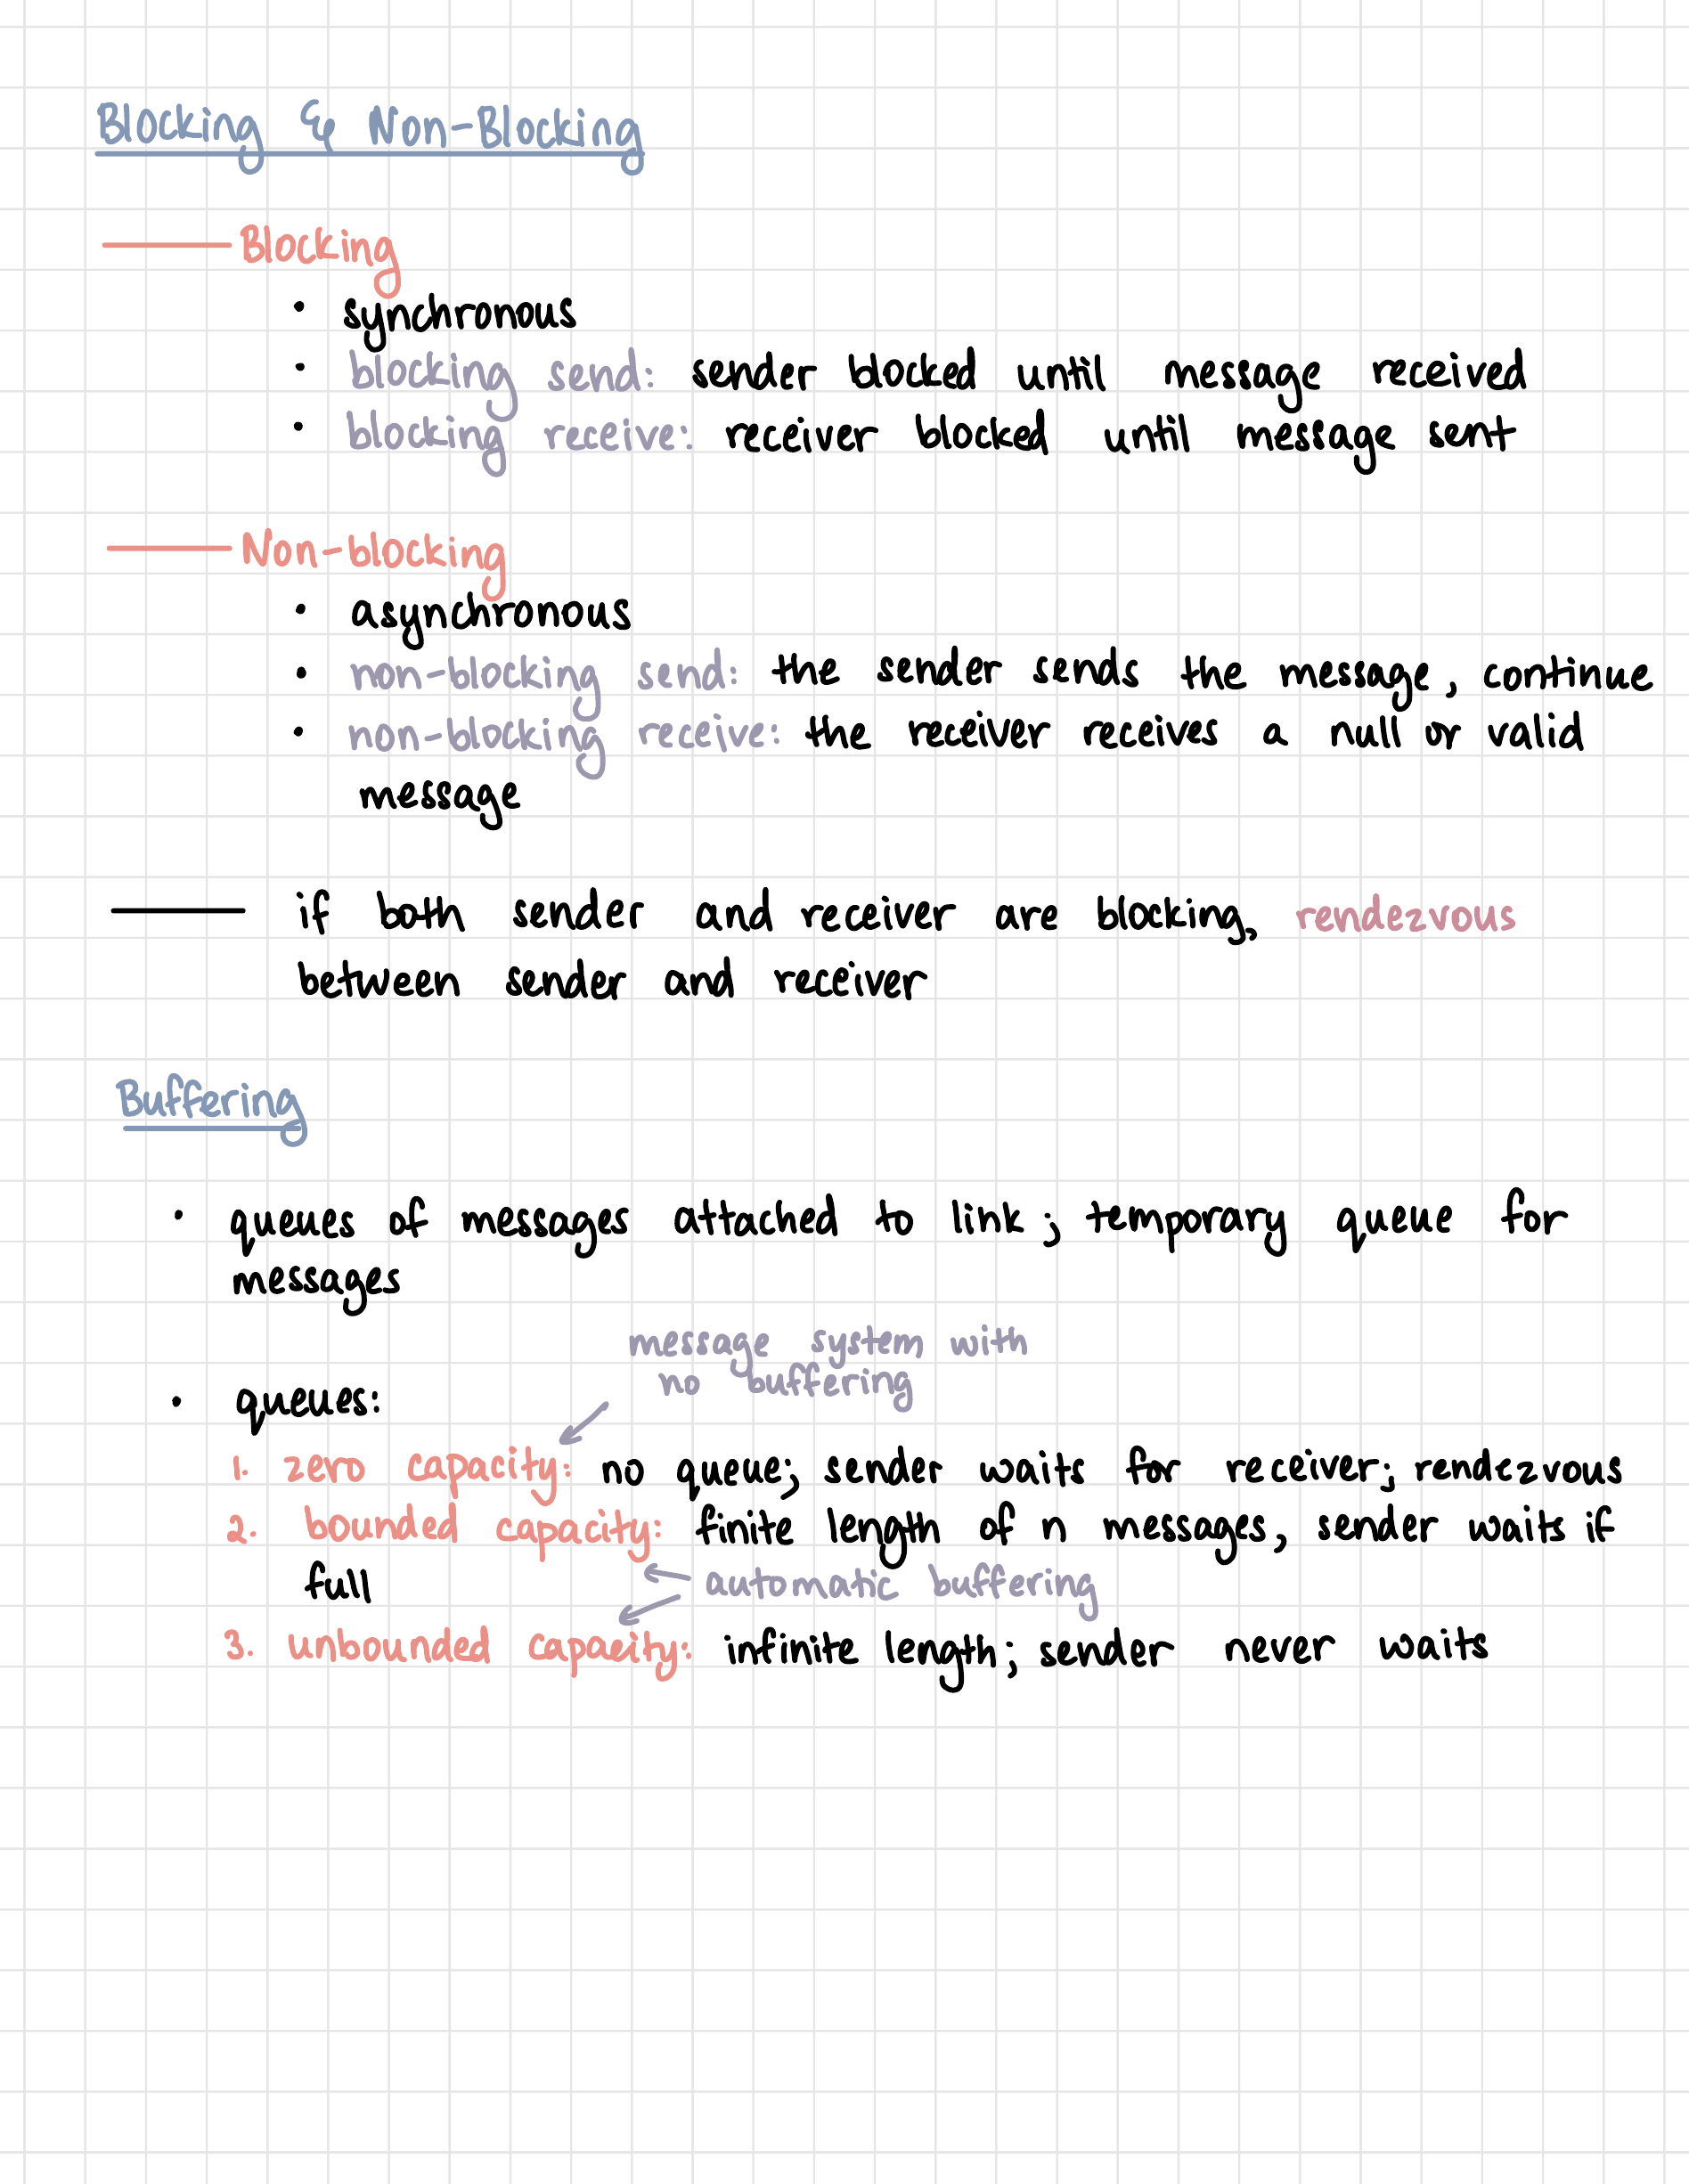 Blocking & Non-Blocking
Blocking
• synchronous
• blocking send: sender blocked until message received
• blocking receive: receiver blocked until message sent
Non-blocking
• asynchronous
• non-blocking send: the sender sends the message, continue
• non-blocking receive: the receiver receives a null or valid
message
if both sender and receiver are blocking, rendezvous
between sender and receiver
Buffering
• queues of messages attached to link; temporary queue for
messages
message system with
no buffering
• queues:
1. zero capacity: no queue; sender waits for receiver; rendezvous
2. bounded capacity: finite length of n messages, sender waits if
full
automatic buffering
3. unbounded capacity: infinite length; sender never waits